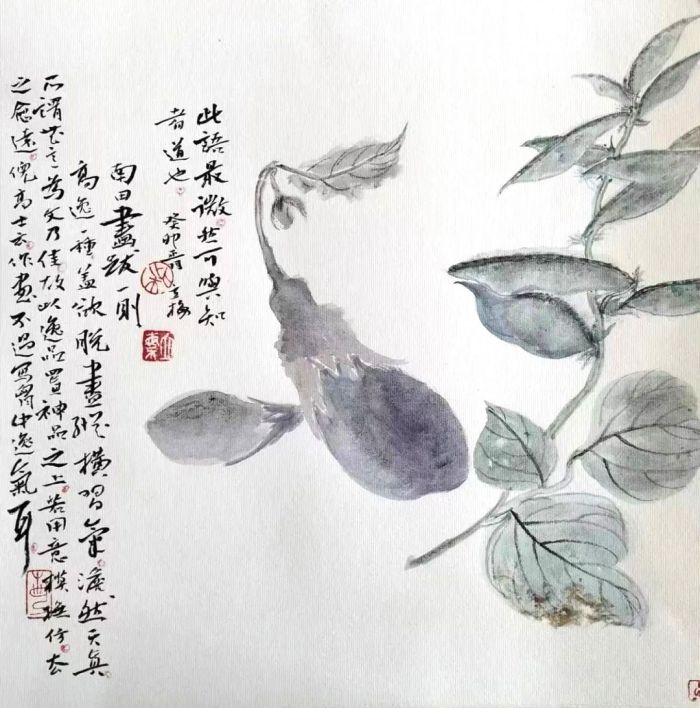 南田畫跋一則
高逸一種蓋欲脫盡縱橫習氣澹然天真
所謂無意為文乃佳故以逸品置神品之上若用意模撫仿去
之愈遠倪高士云作畫不過寫胸中逸氣耳
此語最微然可與知
者道也
癸卯